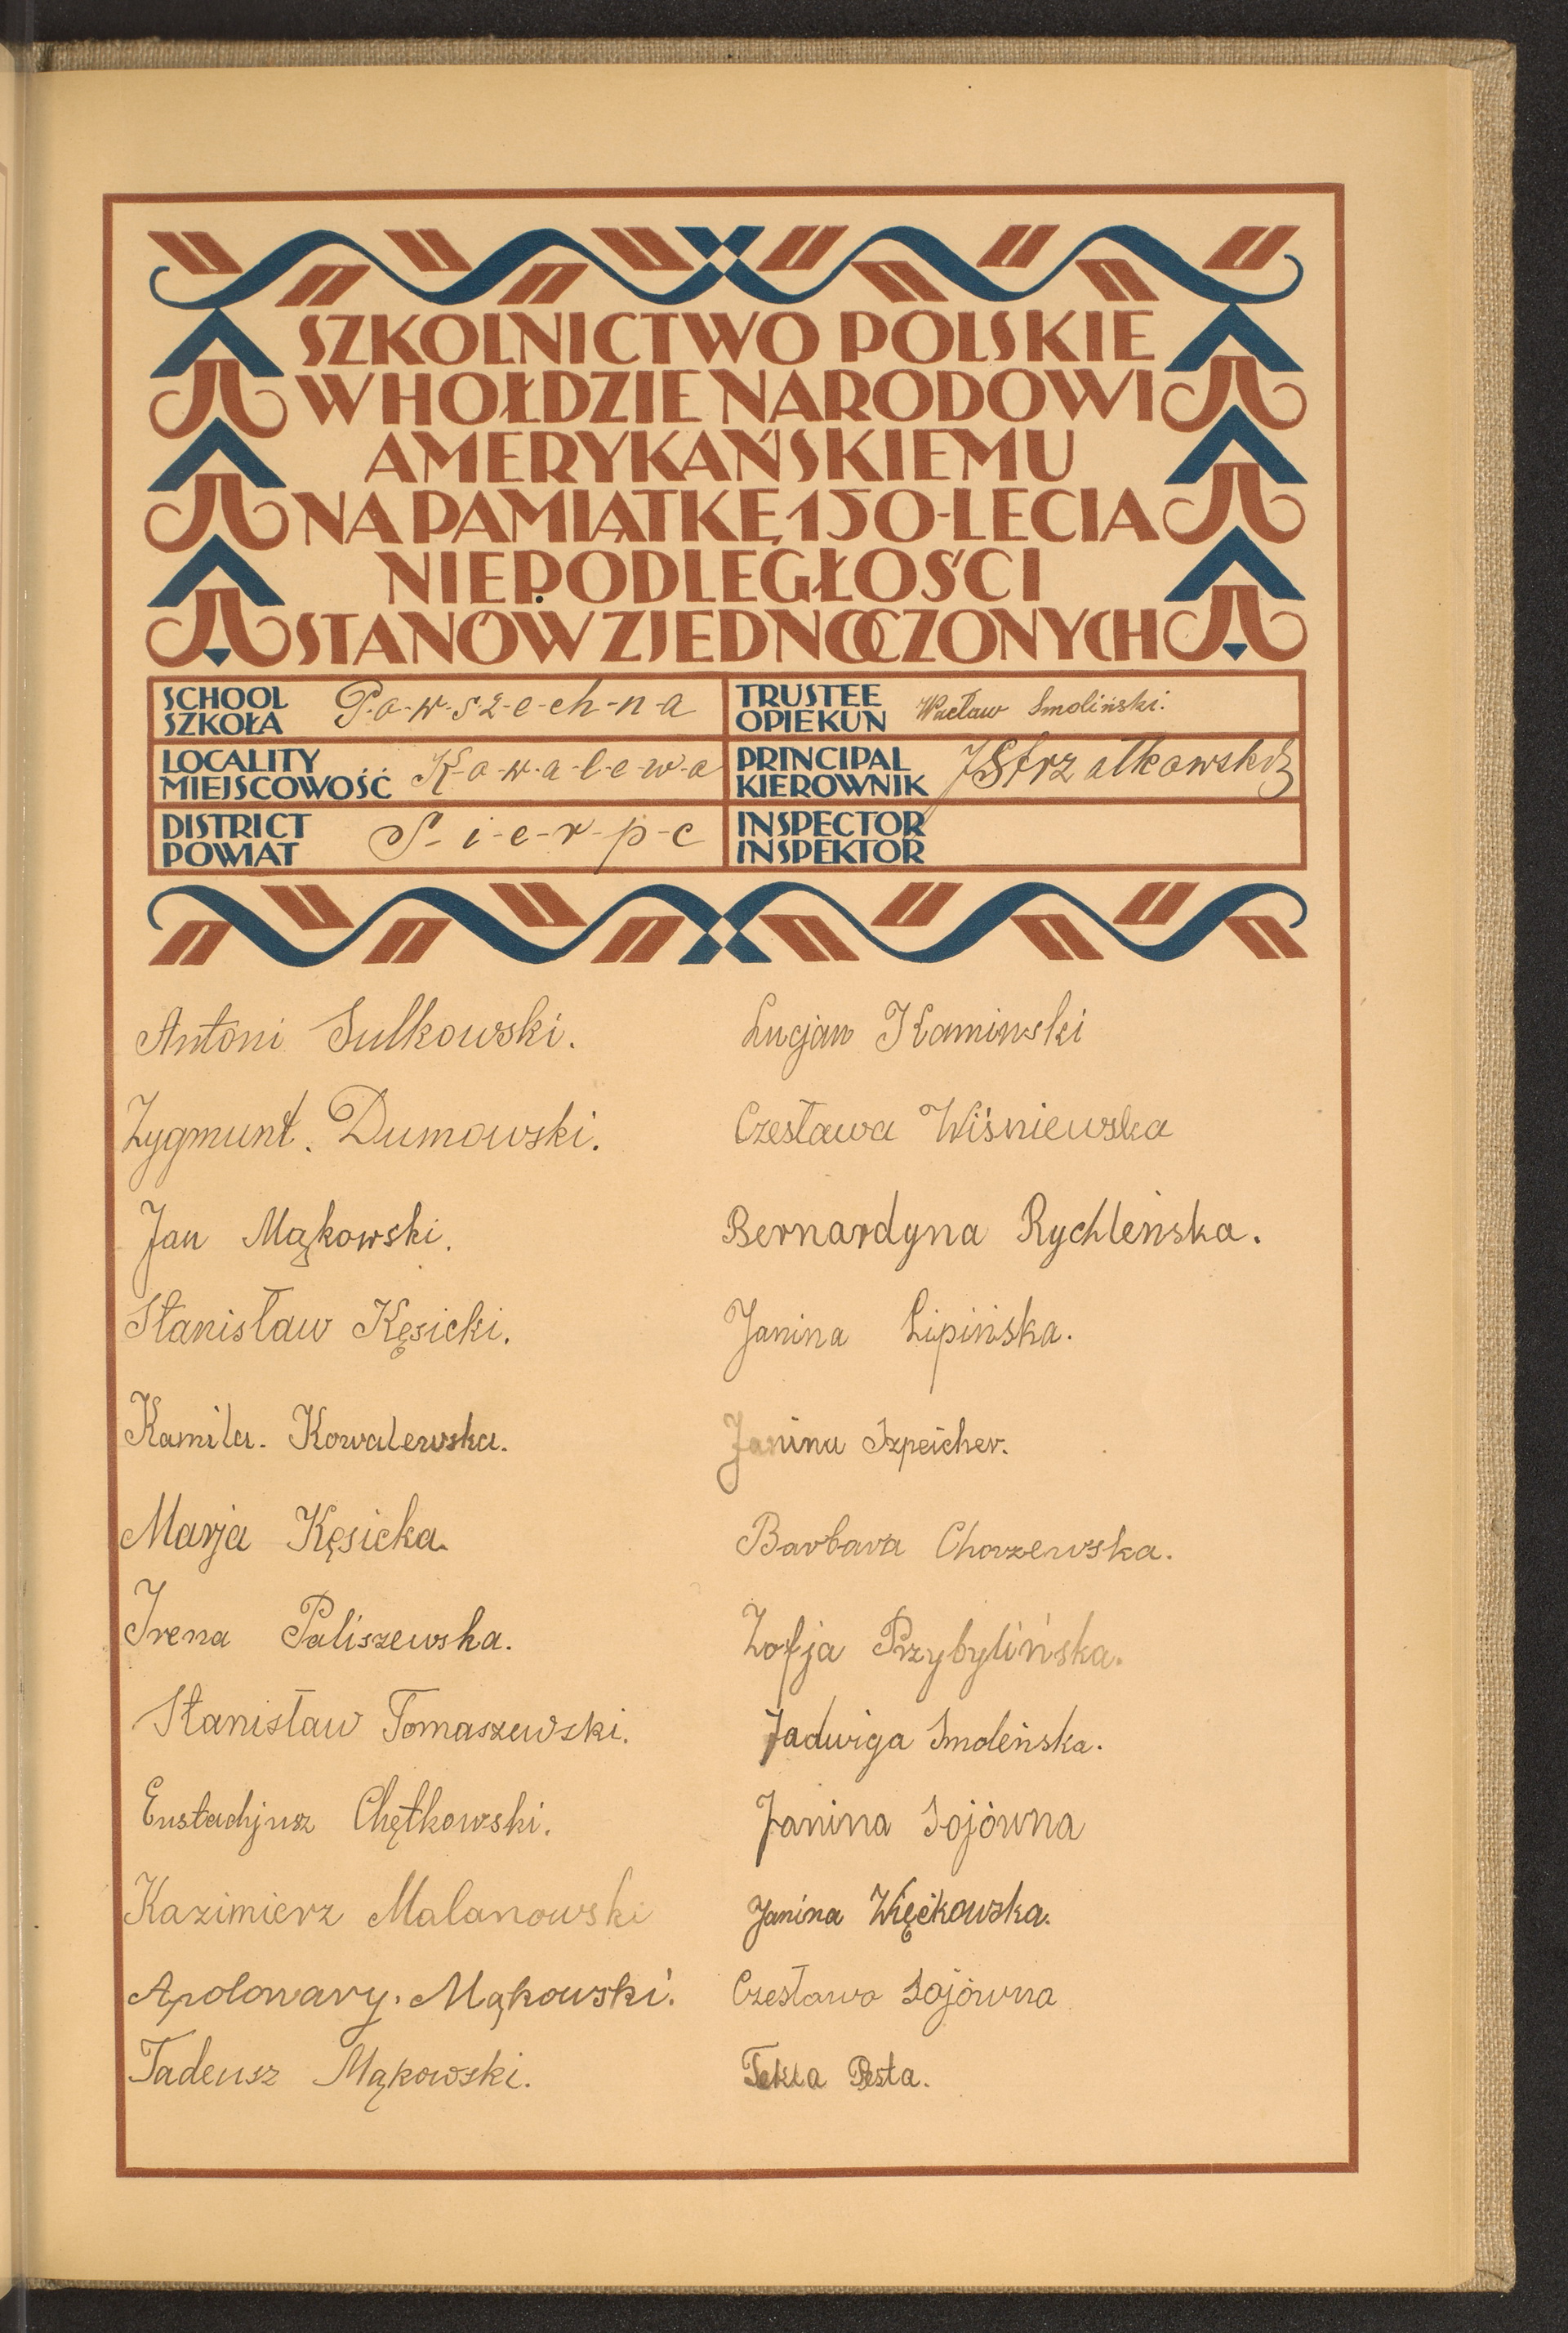 SZKOLNICTWO POLSKIE
W HOŁDZIE NARODOWI
AMERYKAŃSKIEMU
NA PAMIĄTKĘ 150-LECIA
NIEPODLEGŁOŚCI
STANÓW ZJEDNOCZONYCH
SCHOOL
SZKOŁA
P-o-w-s-z-e-ch-n-a
TRUSTEE
OPIEKUN
Wacław Smoliński.
LOCALITY
MIEJSCOWOŚĆ
K-o-w-a-l-e-w-o
PRINCIPAL
KIEROWNIK
JStrzałkowski
DISTRICT
POWIAT
S-i-e-r-p-c
INSPECTOR
INSPEKTOR
Antoni Sulkowski.
Zygmunt. Dumowski.
Jan Mąkowski.
Stanisław Kęsicki.
Kamila. Kowalewska.
Marja Kęsicka.
Irena Paliszewska.
Stanisław Tomaszewski.
Eustachjusz Chętkowski.
Kazimierz Malanowski
Apolonary. Mąkowski.
Tadeusz Mąkowski.
Lucjan Kaminski
Czesława Wiśniewska
Bernardyna Rychleńska.
Janina Lipińska.
Janina Szpeicher.
Barbara Chorzewska.
Zofja Przybylińska.
Jadwiga Smoleńska.
Janina Sojówna
Janina Więckowska.
Czesława Sojówna
Tekla Pesta.